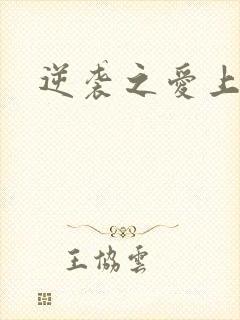 逆袭之愛上
王協雲